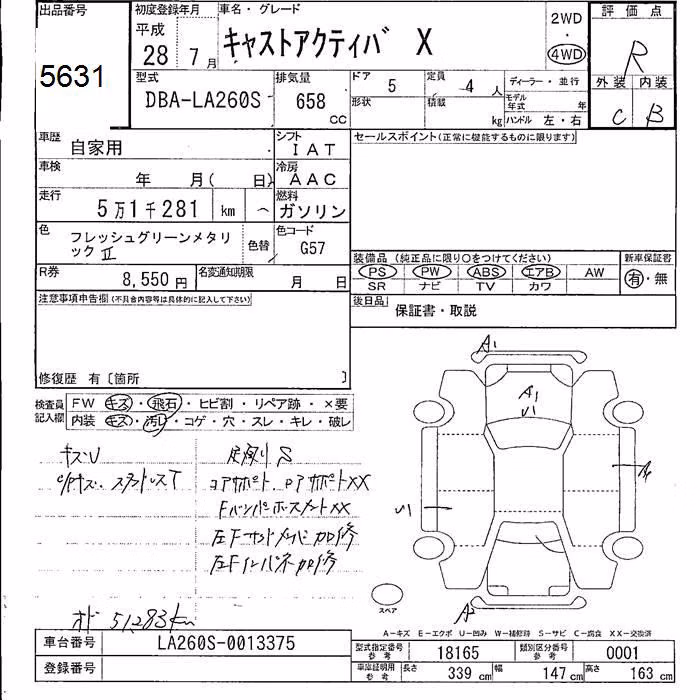 出品番号
5631
初度登録年月
平成
28 7月
車名・グレード
キャストアクティバ X
2WD
・
4WD
評価点
R
外装 内装
C B
型式
DBA-LA260S
排気量
658
CC
ドア
5
定員
4 人
形状
積載
kg
ディーラー・並行
モデル
年式
年
ハンドル 左・右
車歴
自家用
シフト
IAT
車検
年 月( 日)
冷房
AAC
走行
5万1千281 km
燃料
ガソリン
色
フレッシュグリーンメタリ
ック Ⅱ
色替
色コード
G57
R券
8,550円
名変通知期限
月 日
セールスポイント(正常に機能するものに限ります)
装備品 (純正品に限り○をつけてください)
PS PW ABS エアB AW
SR ナビ TV カワ
新車保証書
有・無
後日品
保証書・取説
注意事項申告欄(不具合内容等は具体的に記入して下さい)
修復歴 有〔箇所 〕
検査員
記入欄
FW キズ・飛石・ヒビ割・リペア跡・×要
内装 キズ・汚れ・コゲ・穴・スレ・キレ・破レ
キズU
スタットレスT
足廻り S
コアサポート ロアサポートXX
FバンパホースメントXX
左Fサイドメンバ 加修
左Fインパネ加修
オド 51,283km
A1
A1
U1
A2
スペア
A-キズ E-エクボ U-凹み W-補修跡 S-サビ C-腐食 XX-交換済
車台番号
LA260S-0013375
登録番号
型式指定番号
参考
18165
類別区分番号
参考
0001
車庫証明用
参考
長さ 339 cm 幅 147 cm 高さ 163 cm